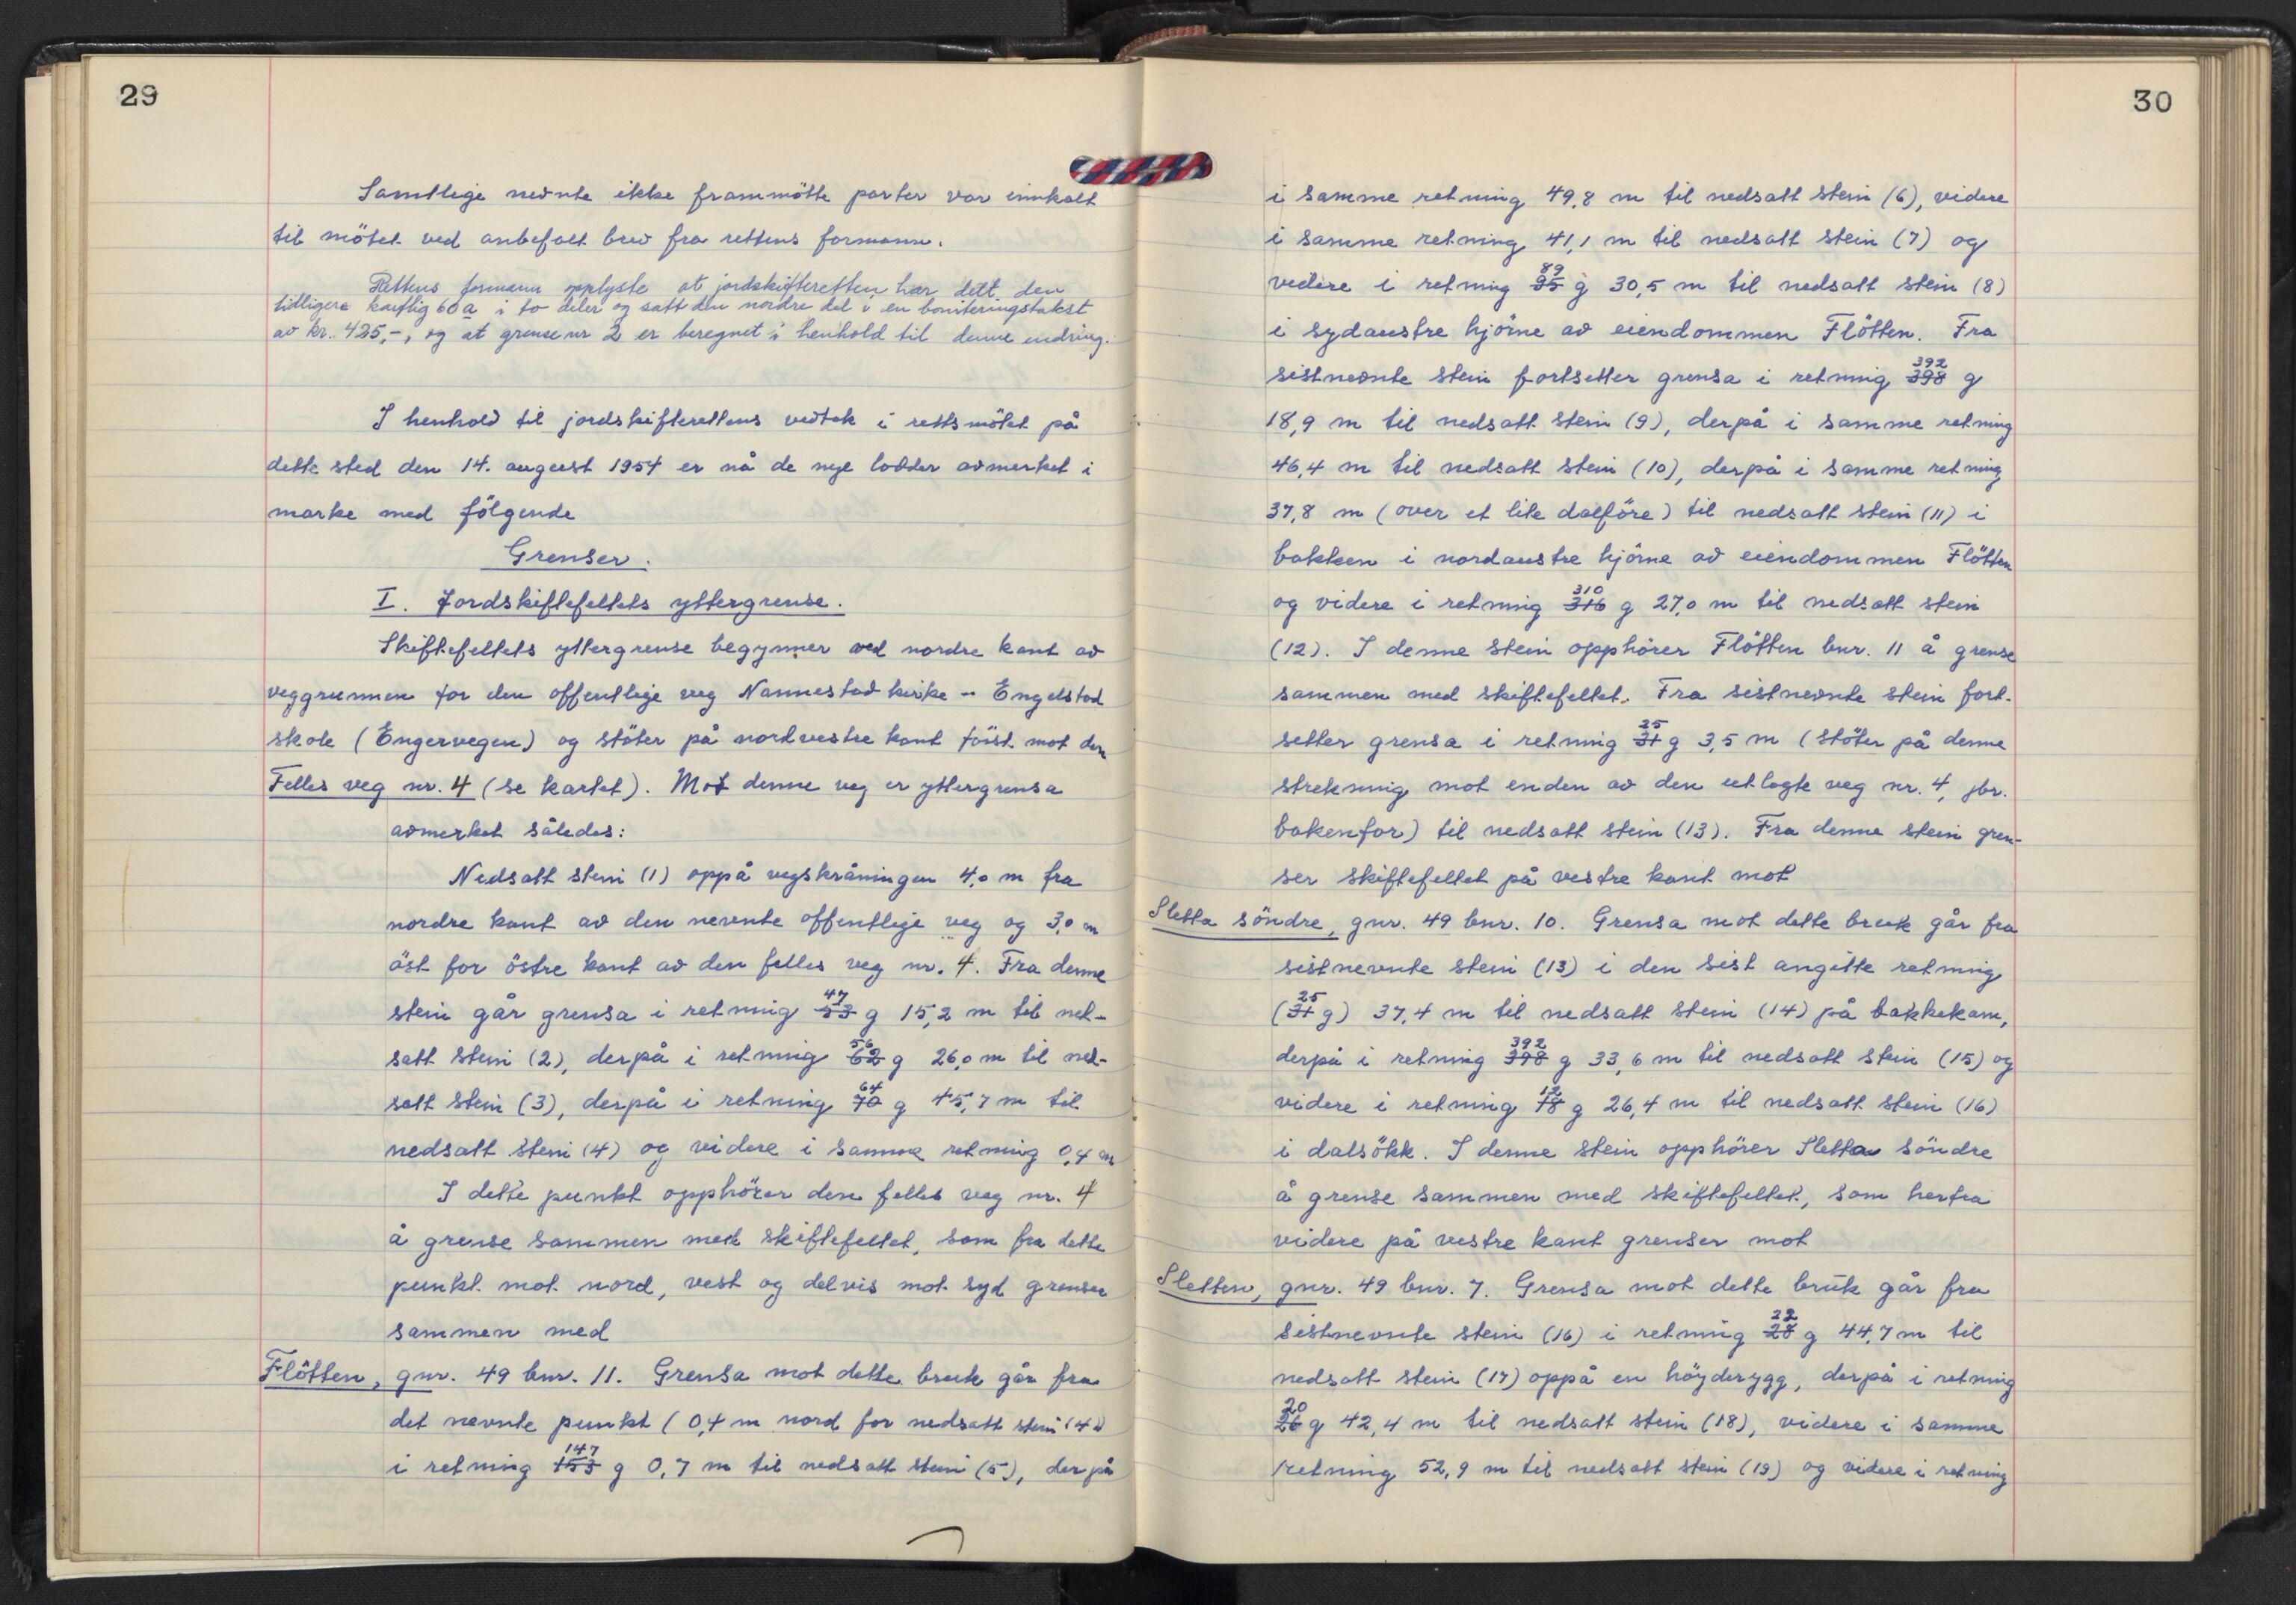 29
Samtlige nevnte ikke frammötte parter var innkalt
til mötet ved anbefalt brev fra rettens formann.
Rettens formann opplyste at jordskifteretten har delt den
tidligere kartfig 60a i to deler og satt den nordre del i en boniteringstakst
av kr. 425,-, og at grense nr 2 er beregnet i henhold til denne endring.
I henhold til jordskifterettens vedtak i rettsmötet på
dette sted den 14. august 1954 er nå de nye lodder avmerket i
marke med fölgende
Grenser.
I. Jordskiftefeltets yttergrense.
Skiftefeltets yttergrense begynner ved nordre kant av
veggrunnen for den offentlige veg Nannestad kirke - Engelstad
skole (Engervegen) og stöter på nordvestre kant först mot den
Felles veg nr. 4 (se kartet). Mot denne veg er yttergrensa
avmerket således:
Nedsatt stein (1) oppå vegskråningen 4,0 m fra
nordre kant av den nevnte offentlige veg og 3,0 m
öst for östre kant av den felles veg nr. 4. Fra denne
47
stein går grensa i retning 53 g 15,2 m til ned-
56
satt stein (2), derpå i retning 62 g 26,0 m til ned-
64
satt stein (3), derpå i retning 70 g 45,7 m til
nedsatt stein (4) og videre i samme retning 0,4 m
I dette punkt opphörer den felles veg nr. 4
å grense sammen med skiftefeltet, som fra dette
punkt mot nord, vest og delvis mot syd grenser
sammen med
Flötten, gnr. 49 bnr. 11. Grensa mot dette bruk går fra
det nevnte punkt (0,4 m nord for nedsatt stein (4))
147
i retning 153 g 0,7 m til nedsatt stein (5), derpå
30
i samme retning 49,8 m til nedsatt stein (6), videre
i samme retning 41,1 m til nedsatt stein (7) og
89
videre i retning 95 g 30,5 m til nedsatt stein (8)
i sydaustre hjörne av eiendommen Flötten. Fra
392
sistnevnte stein fortsetter grensa i retning 398 g
18,9 m til nedsatt stein (9), derpå i samme retning
46,4 m til nedsatt stein (10), derpå i samme retning
37,8 m (over et lite dalföre) til nedsatt stein (11) i
bakken i nordaustre hjörne av eiendommen Flötten
310
og videre i retning 316 g 27,0 m til nedsatt stein
(12). I denne stein opphörer Flötten bnr. 11 å grense
sammen med skiftefeltet. Fra sistnevnte stein fort-
25
setter grensa i retning 31 g 3,5 m (stöter på denne
strekning mot enden av den utlagte veg nr. 4, jbr.
bakenfor) til nedsatt stein (13). Fra denne stein gren-
ser skiftefeltet på vestre kant mot
Sletta söndre, gnr. 49 bnr. 10. Grensa mot dette bruk går fra
sistnevnte stein (13) i den sist angitte retning
25
(31 g) 37,4 m til nedsatt stein (14) på bakkekam,
392
derpå i retning 398 g 33,6 m til nedsatt stein (15) og
12
videre i retning 18 g 26,4 m til nedsatt stein (16)
i dalsökk. I denne stein opphörer Sletta söndre
å grense sammen med skiftefeltet, som herfra
videre på vestre kant grenser mot
Sletten, gnr. 49 bnr. 7. Grensa mot dette bruk går fra
22
sistnevnte stein (16) i retning 28 g 44,7 m til
nedsatt stein (17) oppå en höyderygg, derpå i retning
20
26 g 42,4 m til nedsatt stein (18), videre i samme
retning 52,9 m til nedsatt stein (19) og videre i retning